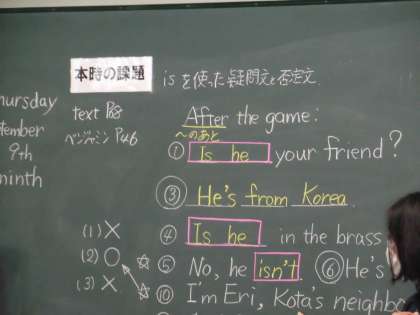 本時の課題 isを使った疑問文と否定文
hursday
tember
9th
ninth
text P88
ページャミン P46
After the game:
〜のあと
① Is he your friend?
③ He's from Korea.
④ Is he in the brass
⑤ No, he isn't ⑥ He's
⑩ I'm Eri, Kota's neighbo
(1) ×
(2) ○
(3) ×